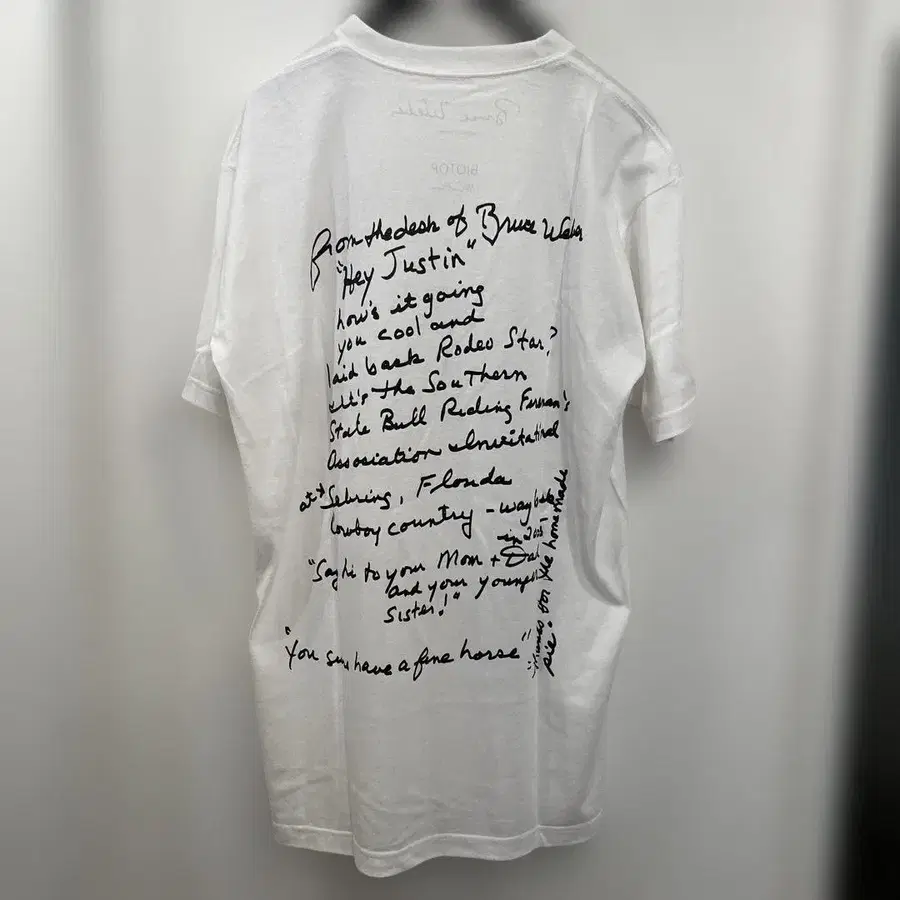 Bruce Weber
BIOTOP
From the desk of Bruce Weber
"Hey Justin"
how's it going
you cool and
laid back Rodeo Star?
It's the Southern
State Bull Riding
Association Invitational
at Sebring, Florida
Cowboy country - way back
in
"Say hi to your Mom + Dad
and your younger
sister!"
"You sure have a fine horse"
for the homemade
pie.